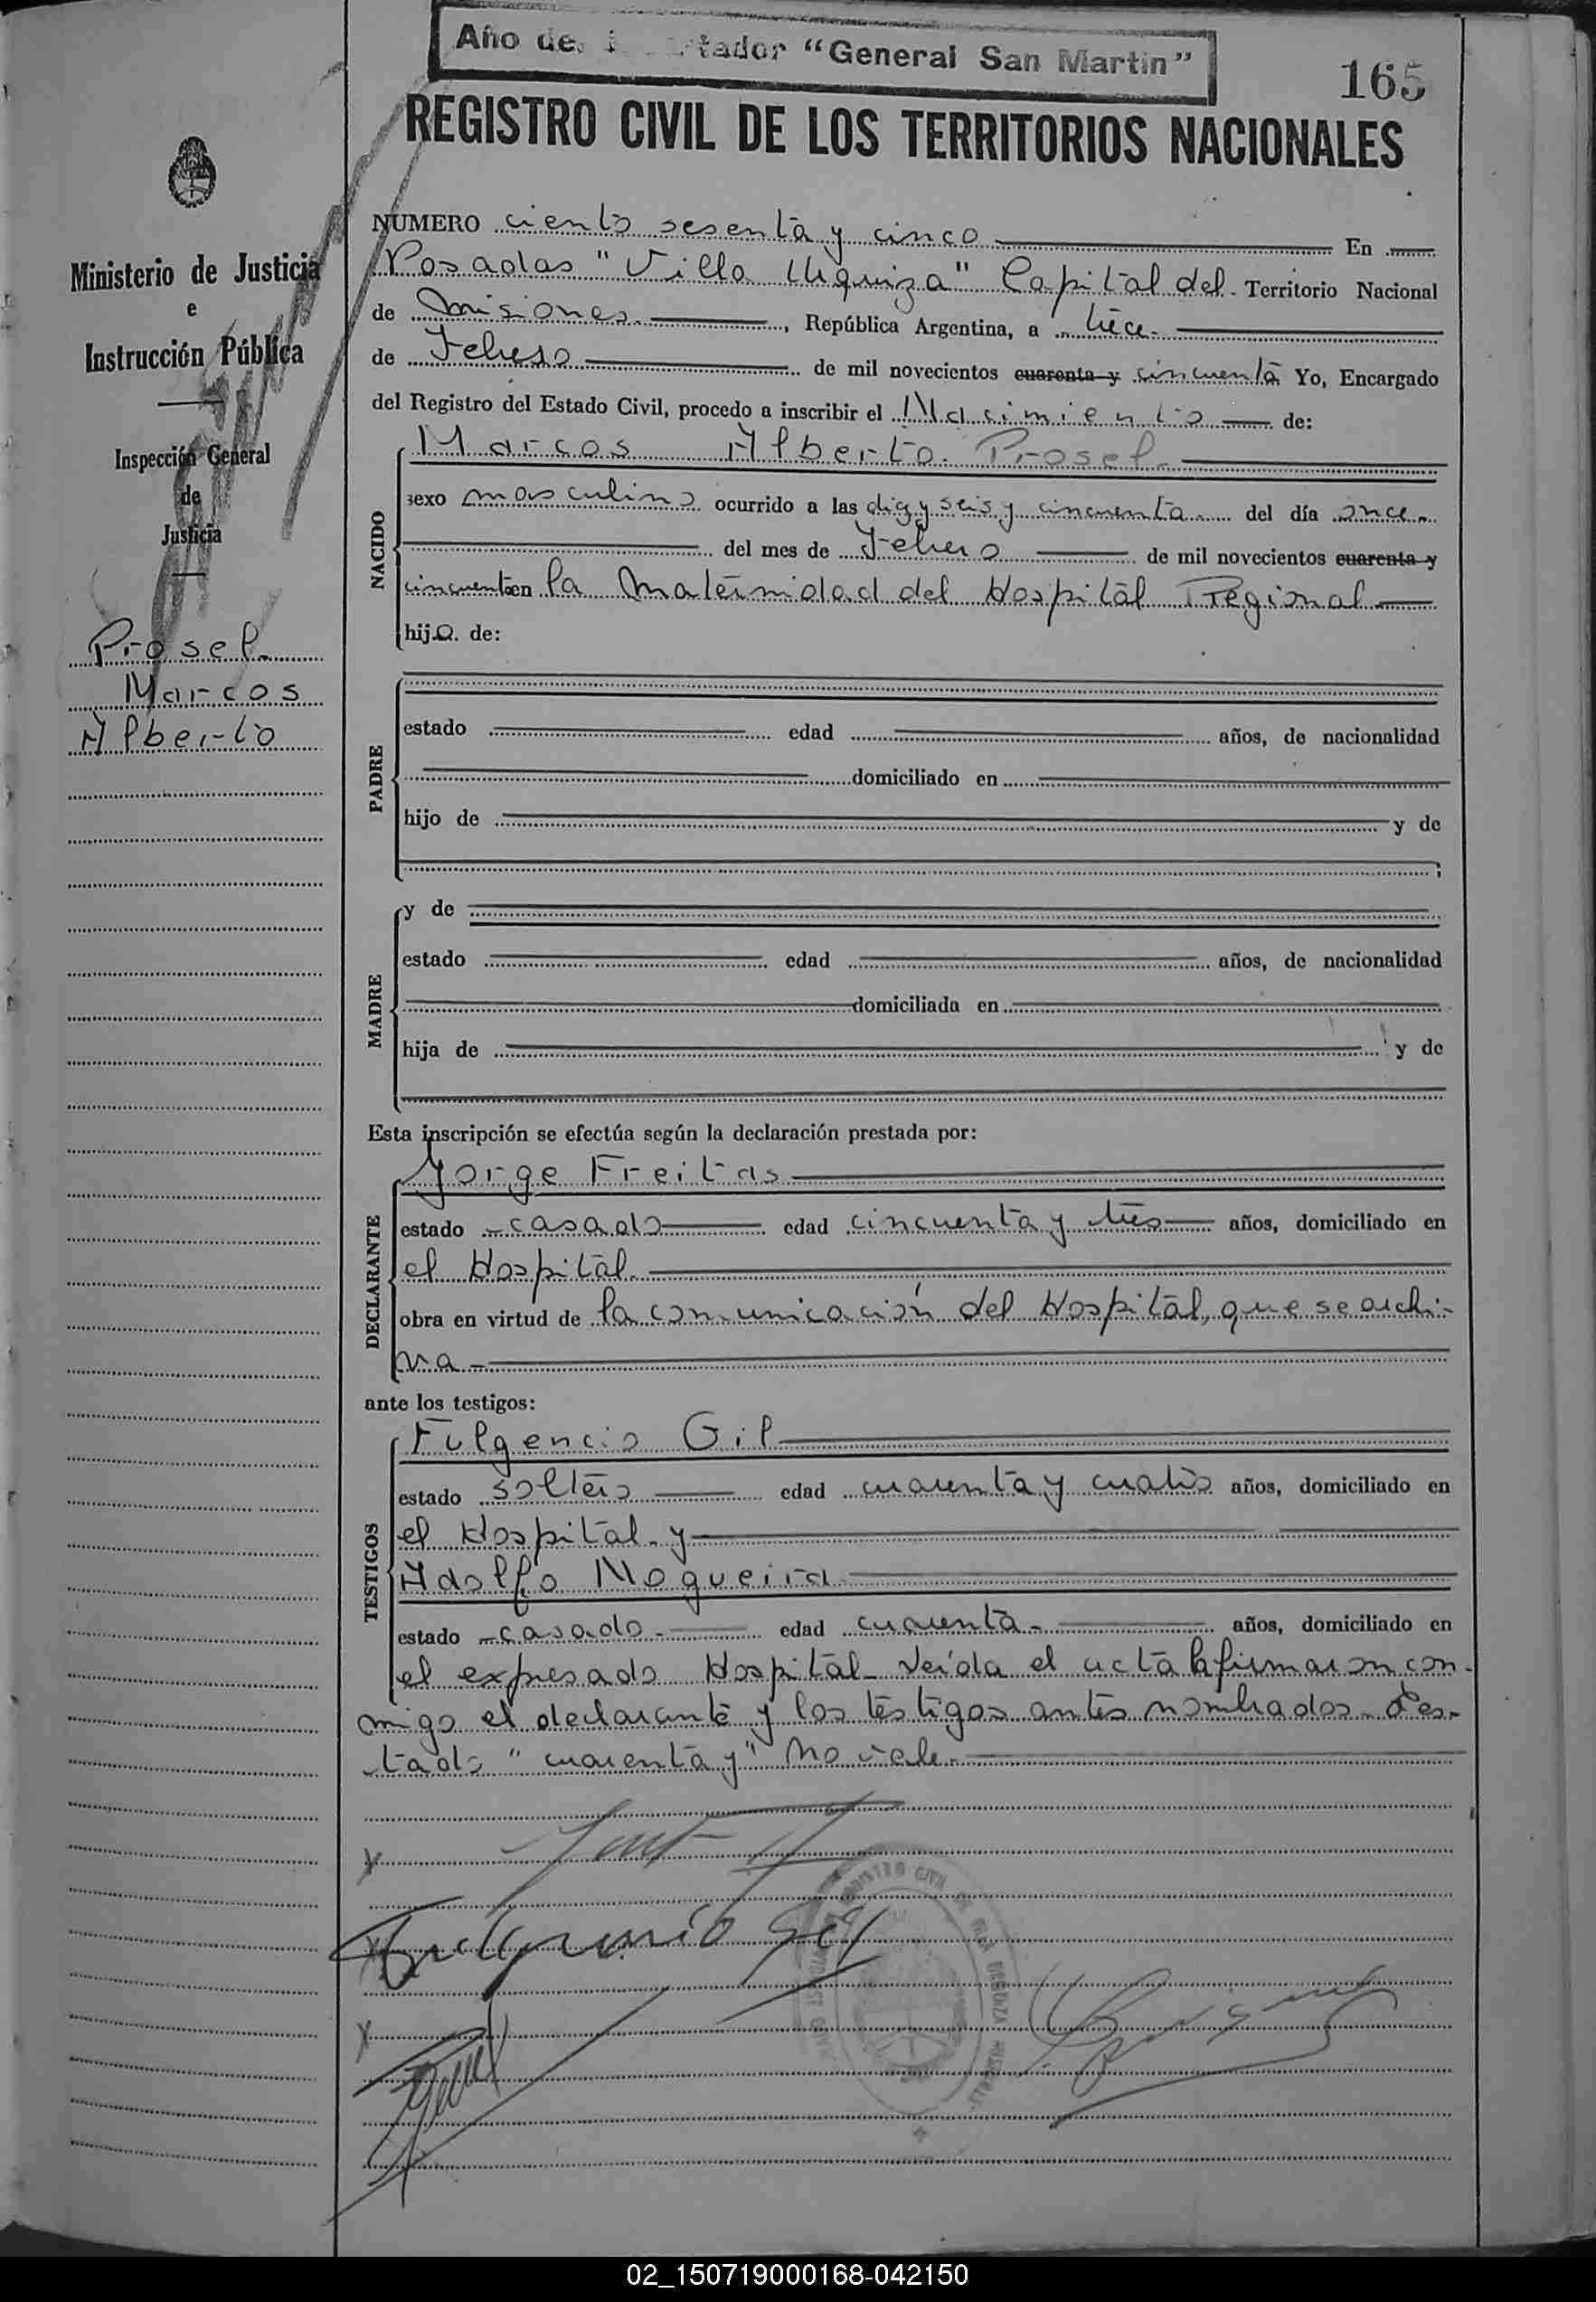 Año de tador “General San Martin”
165
REGISTRO CIVIL DE LOS TERRITORIOS NACIONALES
Ministerio de Justicia
e
Instrucción Pública
Inspección General
de
Justicia
Prosel
Marcos
Alberto
NUMERO ciento sesenta y cinco En
Posadas "Villa Urquiza" Capital del Territorio Nacional
de Misiones, República Argentina, a trece
de Febrero de mil novecientos cuarenta y cincuenta Yo, Encargado
del Registro del Estado Civil, procedo a inscribir el Nacimiento de:
NACIDO
Marcos Alberto Prosel
sexo masculino ocurrido a las diez y seis y cincuenta del día once
del mes de Febrero de mil novecientos cuarenta y
cincuenta en la Maternidad del Hospital Regional
hijo de:
PADRE
estado edad años, de nacionalidad
domiciliado en
hijo de y de
;
MADRE
y de
estado edad años, de nacionalidad
domiciliada en
hija de y de
Esta inscripción se efectúa según la declaración prestada por:
DECLARANTE
Jorge Freitas
estado casado edad cincuenta y tres años, domiciliado en
el Hospital.
obra en virtud de la comunicación del Hospital, que se archi-
va
ante los testigos:
TESTIGOS
Fulgencio Gil
estado soltero edad cuarenta y cuatro años, domiciliado en
el Hospital y
Adolfo Nogueira
estado casado edad cuarenta años, domiciliado en
el expresado Hospital Leída el acta la firmaron con-
migo el declarante y los testigos antes nombrados. Tes-
tado "cuarenta y" No vale.
Fulgencio Gil
REGISTRO CIVIL
02_150719000168-042150